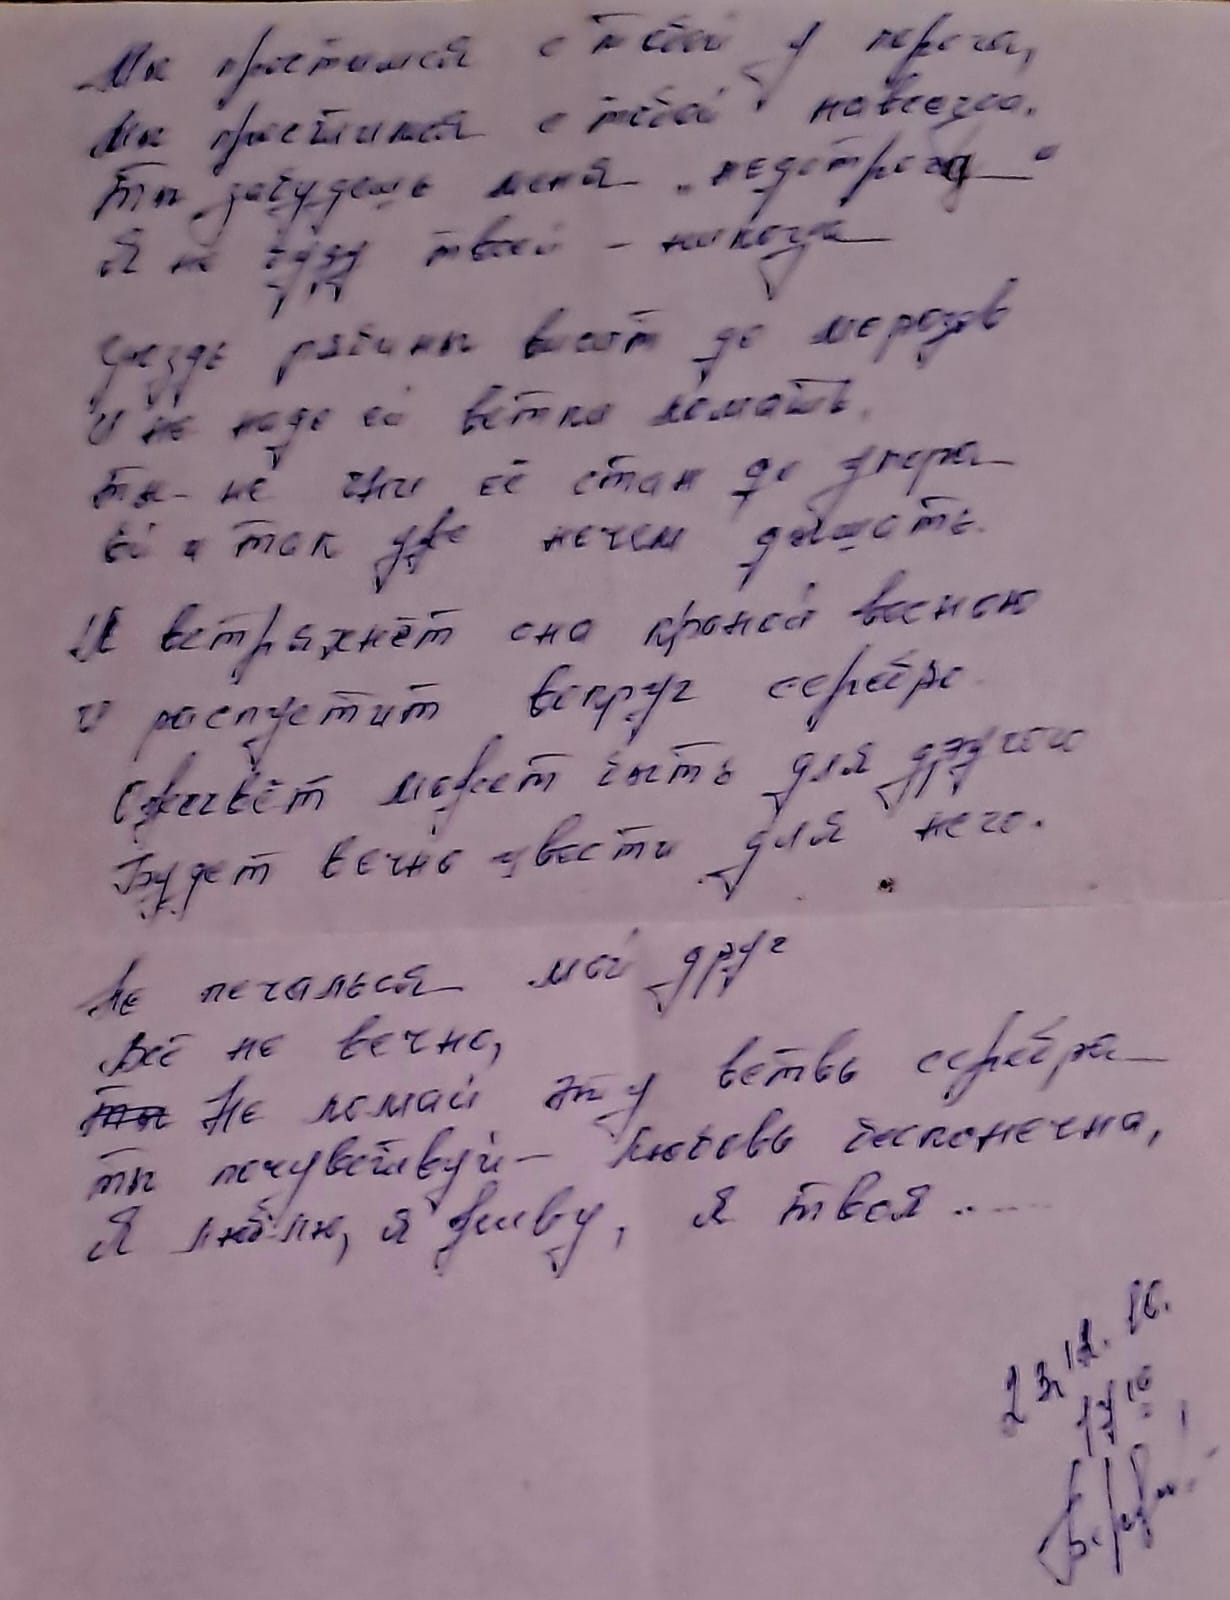 Мы простимся с тобой у порога,
Мы простимся с тобой навсегда.
Ты забудешь меня „недотрога“
Я не буду твоей – никогда
Гроздь рябины висит до морозов
И не надо ей ветки ломать.
Ты – не гни её стан до упора
Ей и так уже нечем дышать.
И встряхнёт она кроной весною
И распустит вокруг серебро
Оживёт может быть для другого
Будет вечно цвести для него.
Не печалься мой друг
Всё не вечно,
Не ломай эту ветвь серебра
Ты почувствуй – Любовь бесконечна,
Я люблю, я живу, я твоя .....
23.12.